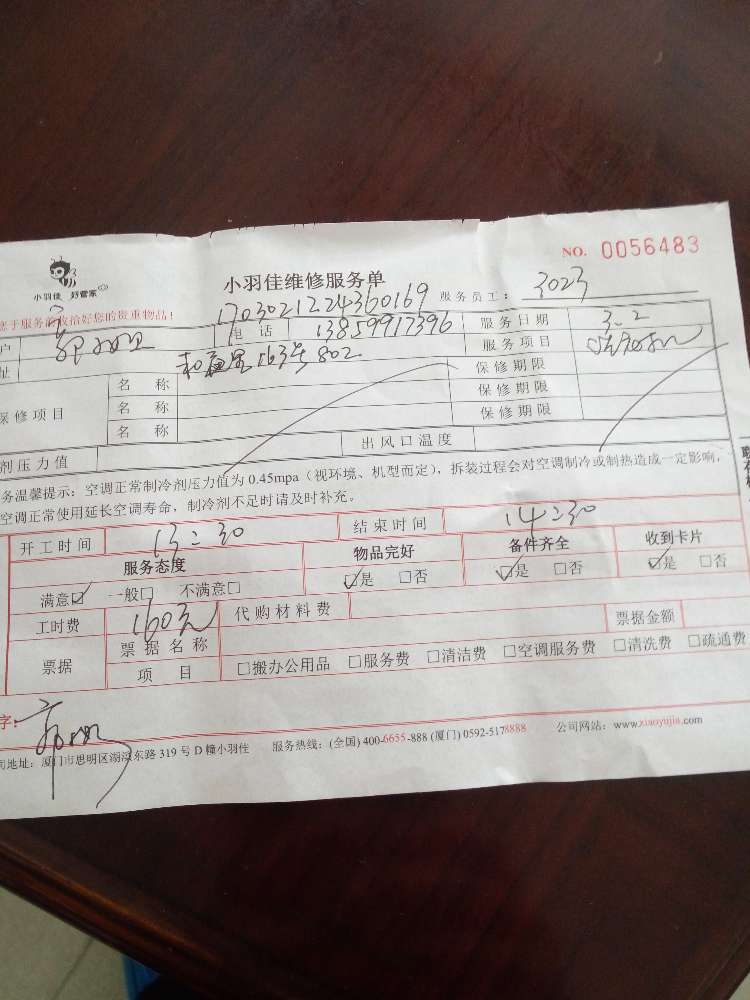 NO. 0056483
小羽佳 好管家
小羽佳维修服务单
1703021224360169 服务员工: 3023
您于服务前收拾好您的贵重物品!
户 电话 13859917396 服务日期 3.2
址 163号802 服务项目
保修项目 名称 保修期限
名称 保修期限
名称 保修期限
剂压力值 出风口温度
务温馨提示: 空调正常制冷剂压力值为 0.45mpa (视环境、机型而定), 拆装过程会对空调制冷或制热造成一定影响,
空调正常使用延长空调寿命, 制冷剂不足时请及时补充。
开工时间 13:30 结束时间 14:30
服务态度 物品完好 备件齐全 收到卡片
满意☑ 一般□ 不满意□ ☑是 □否 ☑是 □否 ☑是 □否
工时费 160元 代购材料费 票据金额
票据 票据名称
项目 □搬办公用品 □服务费 □清洁费 □空调服务费 □清洗费 □疏通费
字:
司地址: 厦门市思明区湖滨东路 319 号 D 幢小羽佳 服务热线: (全国) 400-6655-888 (厦门) 0592-5178888 公司网站: www.xiaoyujia.com